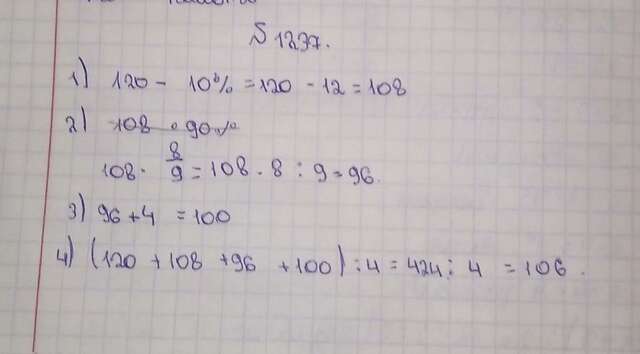 № 1237.
1) 120 - 10% = 120 - 12 = 108
2) 108 · 90%
108 · 8/9 = 108 · 8 : 9 = 96.
3) 96 + 4 = 100
4) (120 + 108 + 96 + 100) : 4 = 424 : 4 = 106.